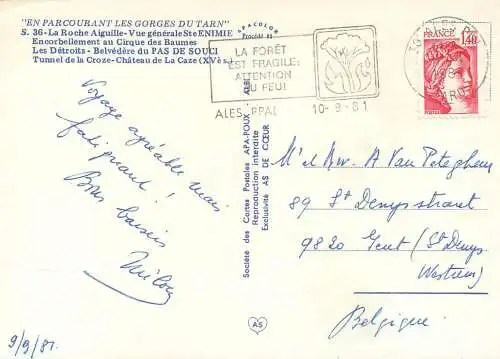 "EN PARCOURANT LES GORGES DU TARN"
S. 36 - La Roche Aiguille - Vue générale Ste ENIMIE
Encorbellement au Cirque des Baumes
Les Détroits - Belvédère du PAS DE SOUCI
Tunnel de la Croze - Château de La Caze (XVe s.)
APACOLOR
LA FORÊT
EST FRAGILE:
ATTENTION
AU FEU!
ALES PPAL 10-9-81
FRANCE
1,40
Voyage agréable mais
fatiguant !
Bons baisers
9/9/81.
Société des Cartes Postales APA-POUX ALBI
Reproduction interdite
Exclusivité AS DE CŒUR
AS
A Van Peteghem
89 St Denysstraat
9820 Gent (St Denys
Westrem)
Belgique.